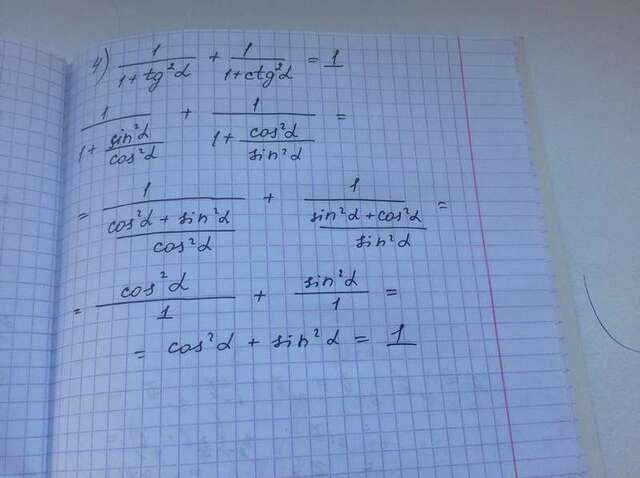 4) 1/(1+tg²α) + 1/(1+ctg²α) = 1
1/(1 + sin²α/cos²α) + 1/(1 + cos²α/sin²α) =
= 1/((cos²α + sin²α)/cos²α) + 1/((sin²α + cos²α)/sin²α) =
= cos²α/1 + sin²α/1 =
= cos²α + sin²α = 1